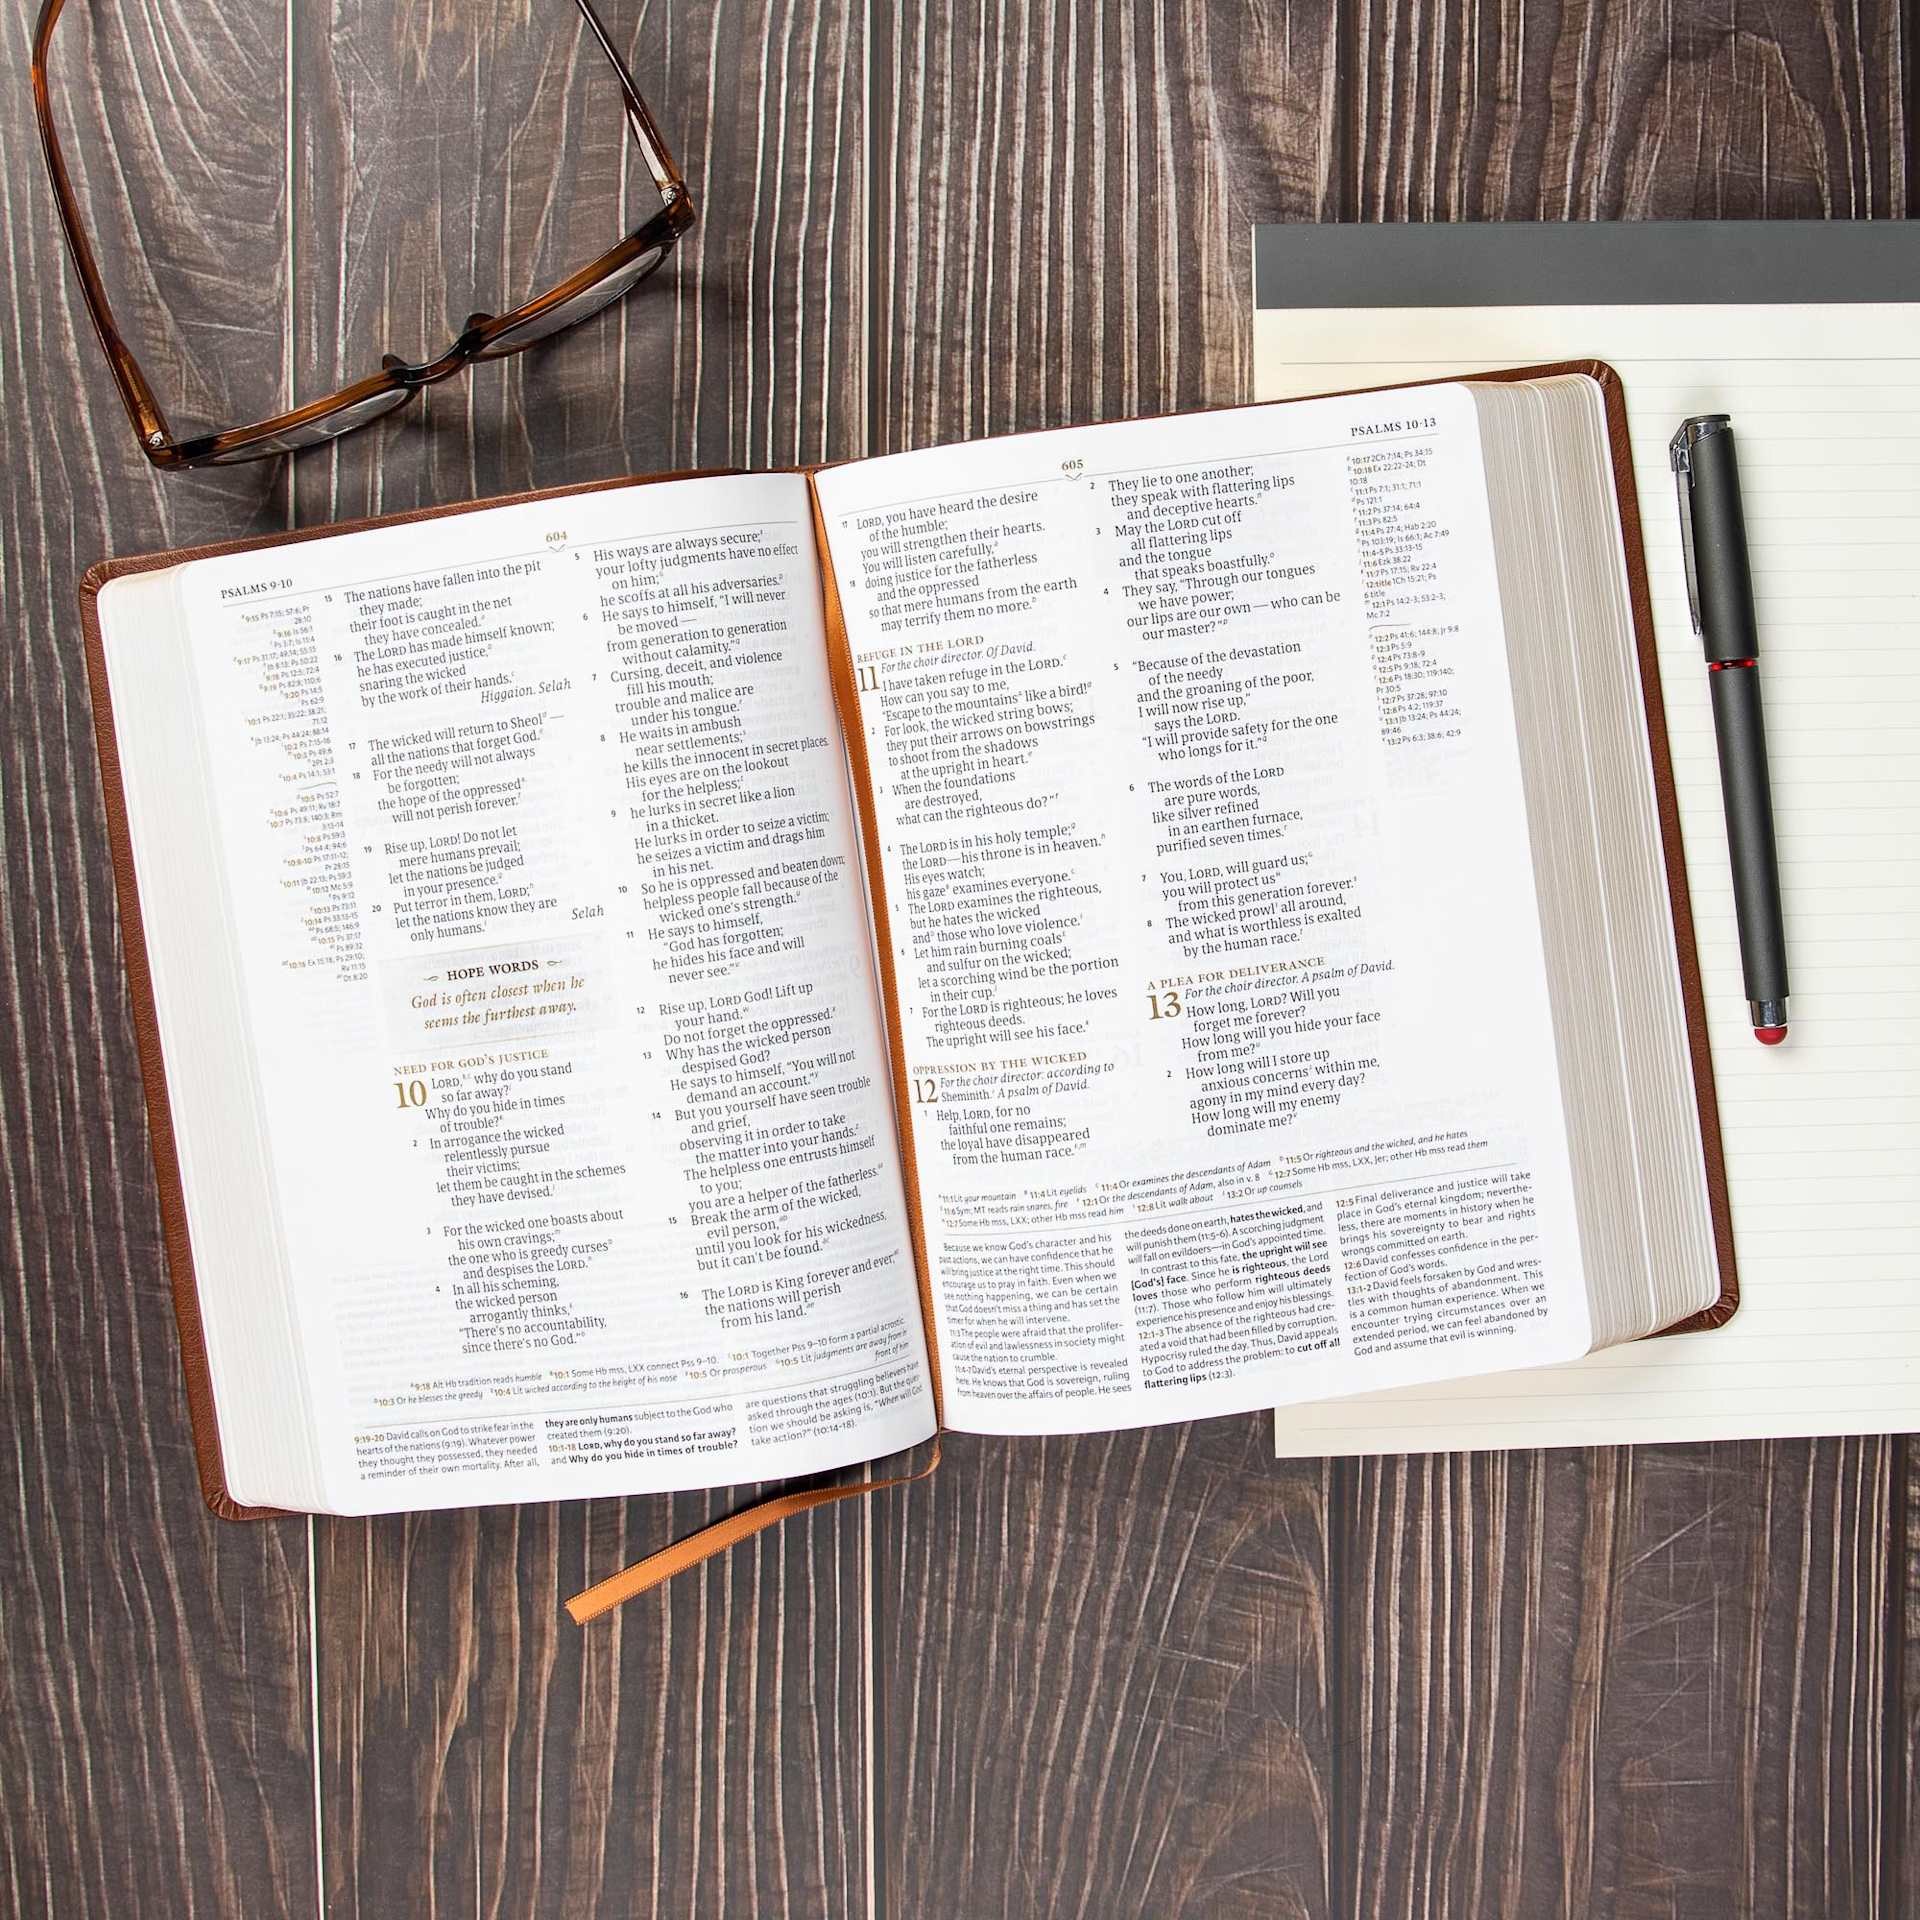 PSALMS 9·10
604
15 The nations have fallen into the pit
they made;
their foot is caught in the net
they have concealed.
16 The LORD has made himself known;
he has executed justice,
snaring the wicked
by the work of their hands.
Higgaion. Selah
17 The wicked will return to Sheol —
all the nations that forget God.
18 For the needy will not always
be forgotten;
the hope of the oppressed
will not perish forever.
19 Rise up, LORD! Do not let
mere humans prevail;
let the nations be judged
in your presence.
20 Put terror in them, LORD;
let the nations know they are
only humans.
Selah
HOPE WORDS
God is often closest when he
seems the furthest away.
NEED FOR GOD'S JUSTICE
10 LORD, why do you stand
so far away?
Why do you hide in times
of trouble?
2 In arrogance the wicked
relentlessly pursue
their victims;
let them be caught in the schemes
they have devised.
3 For the wicked one boasts about
his own cravings;
the one who is greedy curses
and despises the LORD.
4 In all his scheming,
the wicked person
arrogantly thinks,
“There's no accountability,
since there's no God.”
5 His ways are always secure;
your lofty judgments have no effect
on him;
he scoffs at all his adversaries.
6 He says to himself, “I will never
be moved —
from generation to generation
without calamity.”
7 Cursing, deceit, and violence
fill his mouth;
trouble and malice are
under his tongue.
8 He waits in ambush
near settlements;
he kills the innocent in secret places.
His eyes are on the lookout
for the helpless;
9 he lurks in secret like a lion
in a thicket.
He lurks in order to seize a victim;
he seizes a victim and drags him
in his net.
10 So he is oppressed and beaten down;
helpless people fall because of the
wicked one's strength.
11 He says to himself,
“God has forgotten;
he hides his face and will
never see.”
12 Rise up, LORD God! Lift up
your hand.
Do not forget the oppressed.
13 Why has the wicked person
despised God?
He says to himself, “You will not
demand an account.”
14 But you yourself have seen trouble
and grief,
observing it in order to take
the matter into your hands.
The helpless one entrusts himself
to you;
you are a helper of the fatherless.
15 Break the arm of the wicked,
evil person,
until you look for his wickedness,
but it can't be found.
16 The LORD is King forever and ever;
the nations will perish
from his land.
9:18 Alt Hb tradition reads humble 10:1 Some Hb mss, LXX connect Pss 9–10. 10:1 Together Pss 9–10 form a partial acrostic.
10:3 Or he blesses the greedy 10:4 Lit wicked according to the height of his nose 10:5 Or prosperous 10:5 Lit judgments are away from in
front of him
9:19-20 David calls on God to strike fear in the
hearts of the nations (9:19). Whatever power
they thought they possessed, they needed
a reminder of their own mortality. After all,
they are only humans subject to the God who
created them (9:20).
10:1-18 LORD, why do you stand so far away?
and Why do you hide in times of trouble?
are questions that struggling believers have
asked through the ages (10:1). But the ques-
tion we should be asking is, “When will God
take action?” (10:14-18).
605
PSALMS 10·13
17 LORD, you have heard the desire
of the humble;
you will strengthen their hearts.
You will listen carefully,
18 doing justice for the fatherless
and the oppressed
so that mere humans from the earth
may terrify them no more.
REFUGE IN THE LORD
For the choir director. Of David.
11 I have taken refuge in the LORD.
How can you say to me,
“Escape to the mountains like a bird!
2 For look, the wicked string bows;
they put their arrows on bowstrings
to shoot from the shadows
at the upright in heart.
3 When the foundations
are destroyed,
what can the righteous do?”
4 The LORD is in his holy temple;
the LORD—his throne is in heaven.
His eyes watch;
his gaze examines everyone.
5 The LORD examines the righteous,
but he hates the wicked
and those who love violence.
6 Let him rain burning coals
and sulfur on the wicked;
let a scorching wind be the portion
in their cup.
7 For the LORD is righteous; he loves
righteous deeds.
The upright will see his face.
OPPRESSION BY THE WICKED
12 For the choir director: according to
Sheminith. A psalm of David.
1 Help, LORD, for no
faithful one remains;
the loyal have disappeared
from the human race.
2 They lie to one another;
they speak with flattering lips
and deceptive hearts.
3 May the LORD cut off
all flattering lips
and the tongue
that speaks boastfully.
4 They say, “Through our tongues
we have power;
our lips are our own — who can be
our master?”
5 “Because of the devastation
of the needy
and the groaning of the poor,
I will now rise up,”
says the LORD.
“I will provide safety for the one
who longs for it.”
6 The words of the LORD
are pure words,
like silver refined
in an earthen furnace,
purified seven times.
7 You, LORD, will guard us;
you will protect us
from this generation forever.
8 The wicked prowl all around,
and what is worthless is exalted
by the human race.
A PLEA FOR DELIVERANCE
For the choir director. A psalm of David.
13 How long, LORD? Will you
forget me forever?
How long will you hide your face
from me?
2 How long will I store up
anxious concerns within me,
agony in my mind every day?
How long will my enemy
dominate me?
11:1 Lit your mountain 11:4 Lit eyelids 11:4 Or examines the descendants of Adam 11:5 Or righteous and the wicked, and he hates
11:6 Sym; MT reads rain snares, fire 12:1 Or the descendants of Adam, also in v. 8 12:7 Some Hb mss, LXX, Jer; other Hb mss read them
12:7 Some Hb mss, LXX; other Hb mss read him 12:8 Lit walk about 13:2 Or up counsels
Because we know God's character and his
past actions, we can have confidence that he
will bring justice at the right time. This should
encourage us to pray in faith. Even when we
see nothing happening, we can be certain
that God doesn't miss a thing and has set the
timer for when he will intervene.
11:3 The people were afraid that the prolifer-
ation of evil and lawlessness in society might
cause the nation to crumble.
11:4-7 David's eternal perspective is revealed
here. He knows that God is sovereign, ruling
from heaven over the affairs of people. He sees
the deeds done on earth, hates the wicked, and
will punish them (11:5-6). A scorching judgment
will fall on evildoers—in God's appointed time.
In contrast to this fate, the upright will see
[God's] face. Since he is righteous, the Lord
loves those who perform righteous deeds
(11:7). Those who follow him will ultimately
experience his presence and enjoy his blessings.
12:1-3 The absence of the righteous had cre-
ated a void that had been filled by corruption.
Hypocrisy ruled the day. Thus, David appeals
to God to address the problem: to cut off all
flattering lips (12:3).
12:5 Final deliverance and justice will take
place in God's eternal kingdom; neverthe-
less, there are moments in history when he
brings his sovereignty to bear and rights
wrongs committed on earth.
12:6 David confesses confidence in the per-
fection of God's words.
13:1-2 David feels forsaken by God and wres-
tles with thoughts of abandonment. This
is a common human experience. When we
encounter trying circumstances over an
extended period, we can feel abandoned by
God and assume that evil is winning.